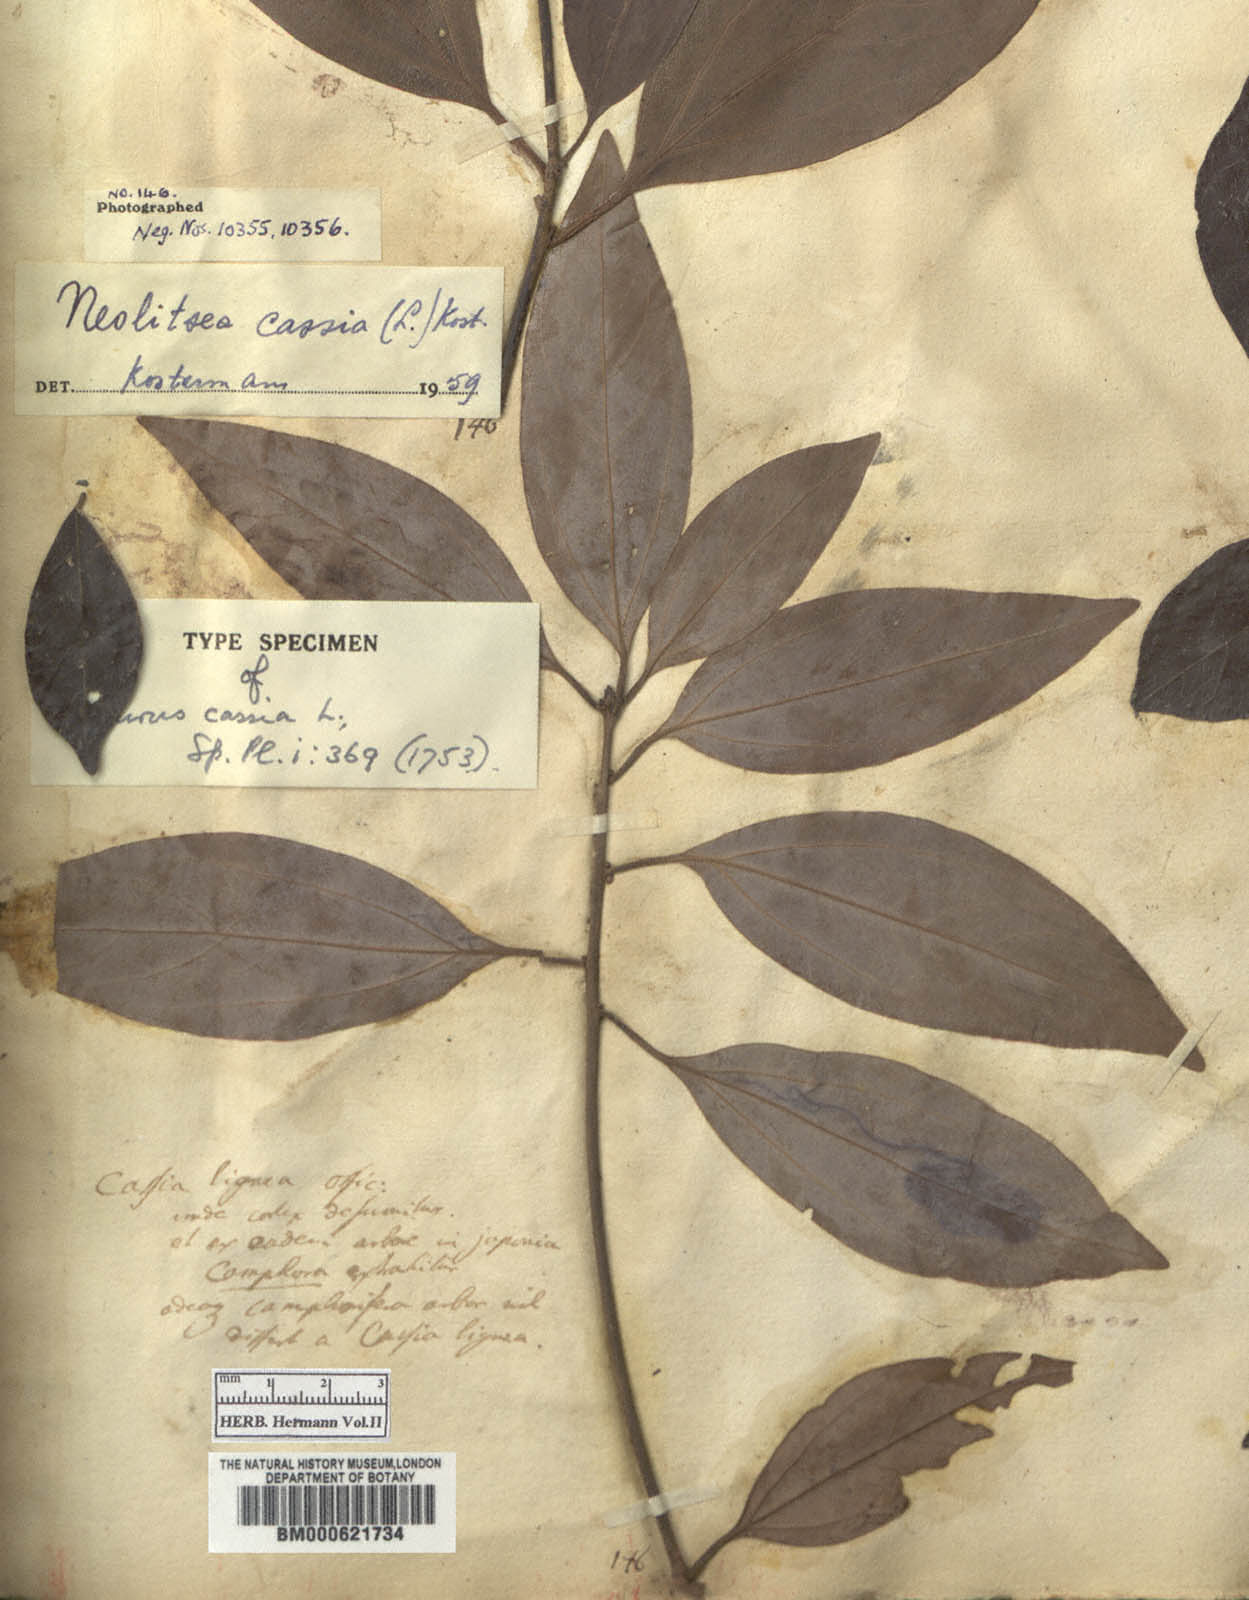 No. 146.
Photographed
Neg. Nos. 10355, 10356.
Neolitsea cassia (L.) Kost.
DET. Kostermans 1959
146
TYPE SPECIMEN
of
cassia L.,
Sp. Pl. i: 369 (1753).
Cassia lignea offic:
unde cortex desumitur.
et ex eadem arbore in japonia
Camphora extrahitur
camphorifera arbor nil
differt a Cassia lignea.
mm 1 2 3
HERB. Hermann Vol.II
THE NATURAL HISTORY MUSEUM, LONDON
DEPARTMENT OF BOTANY
BM000621734
146